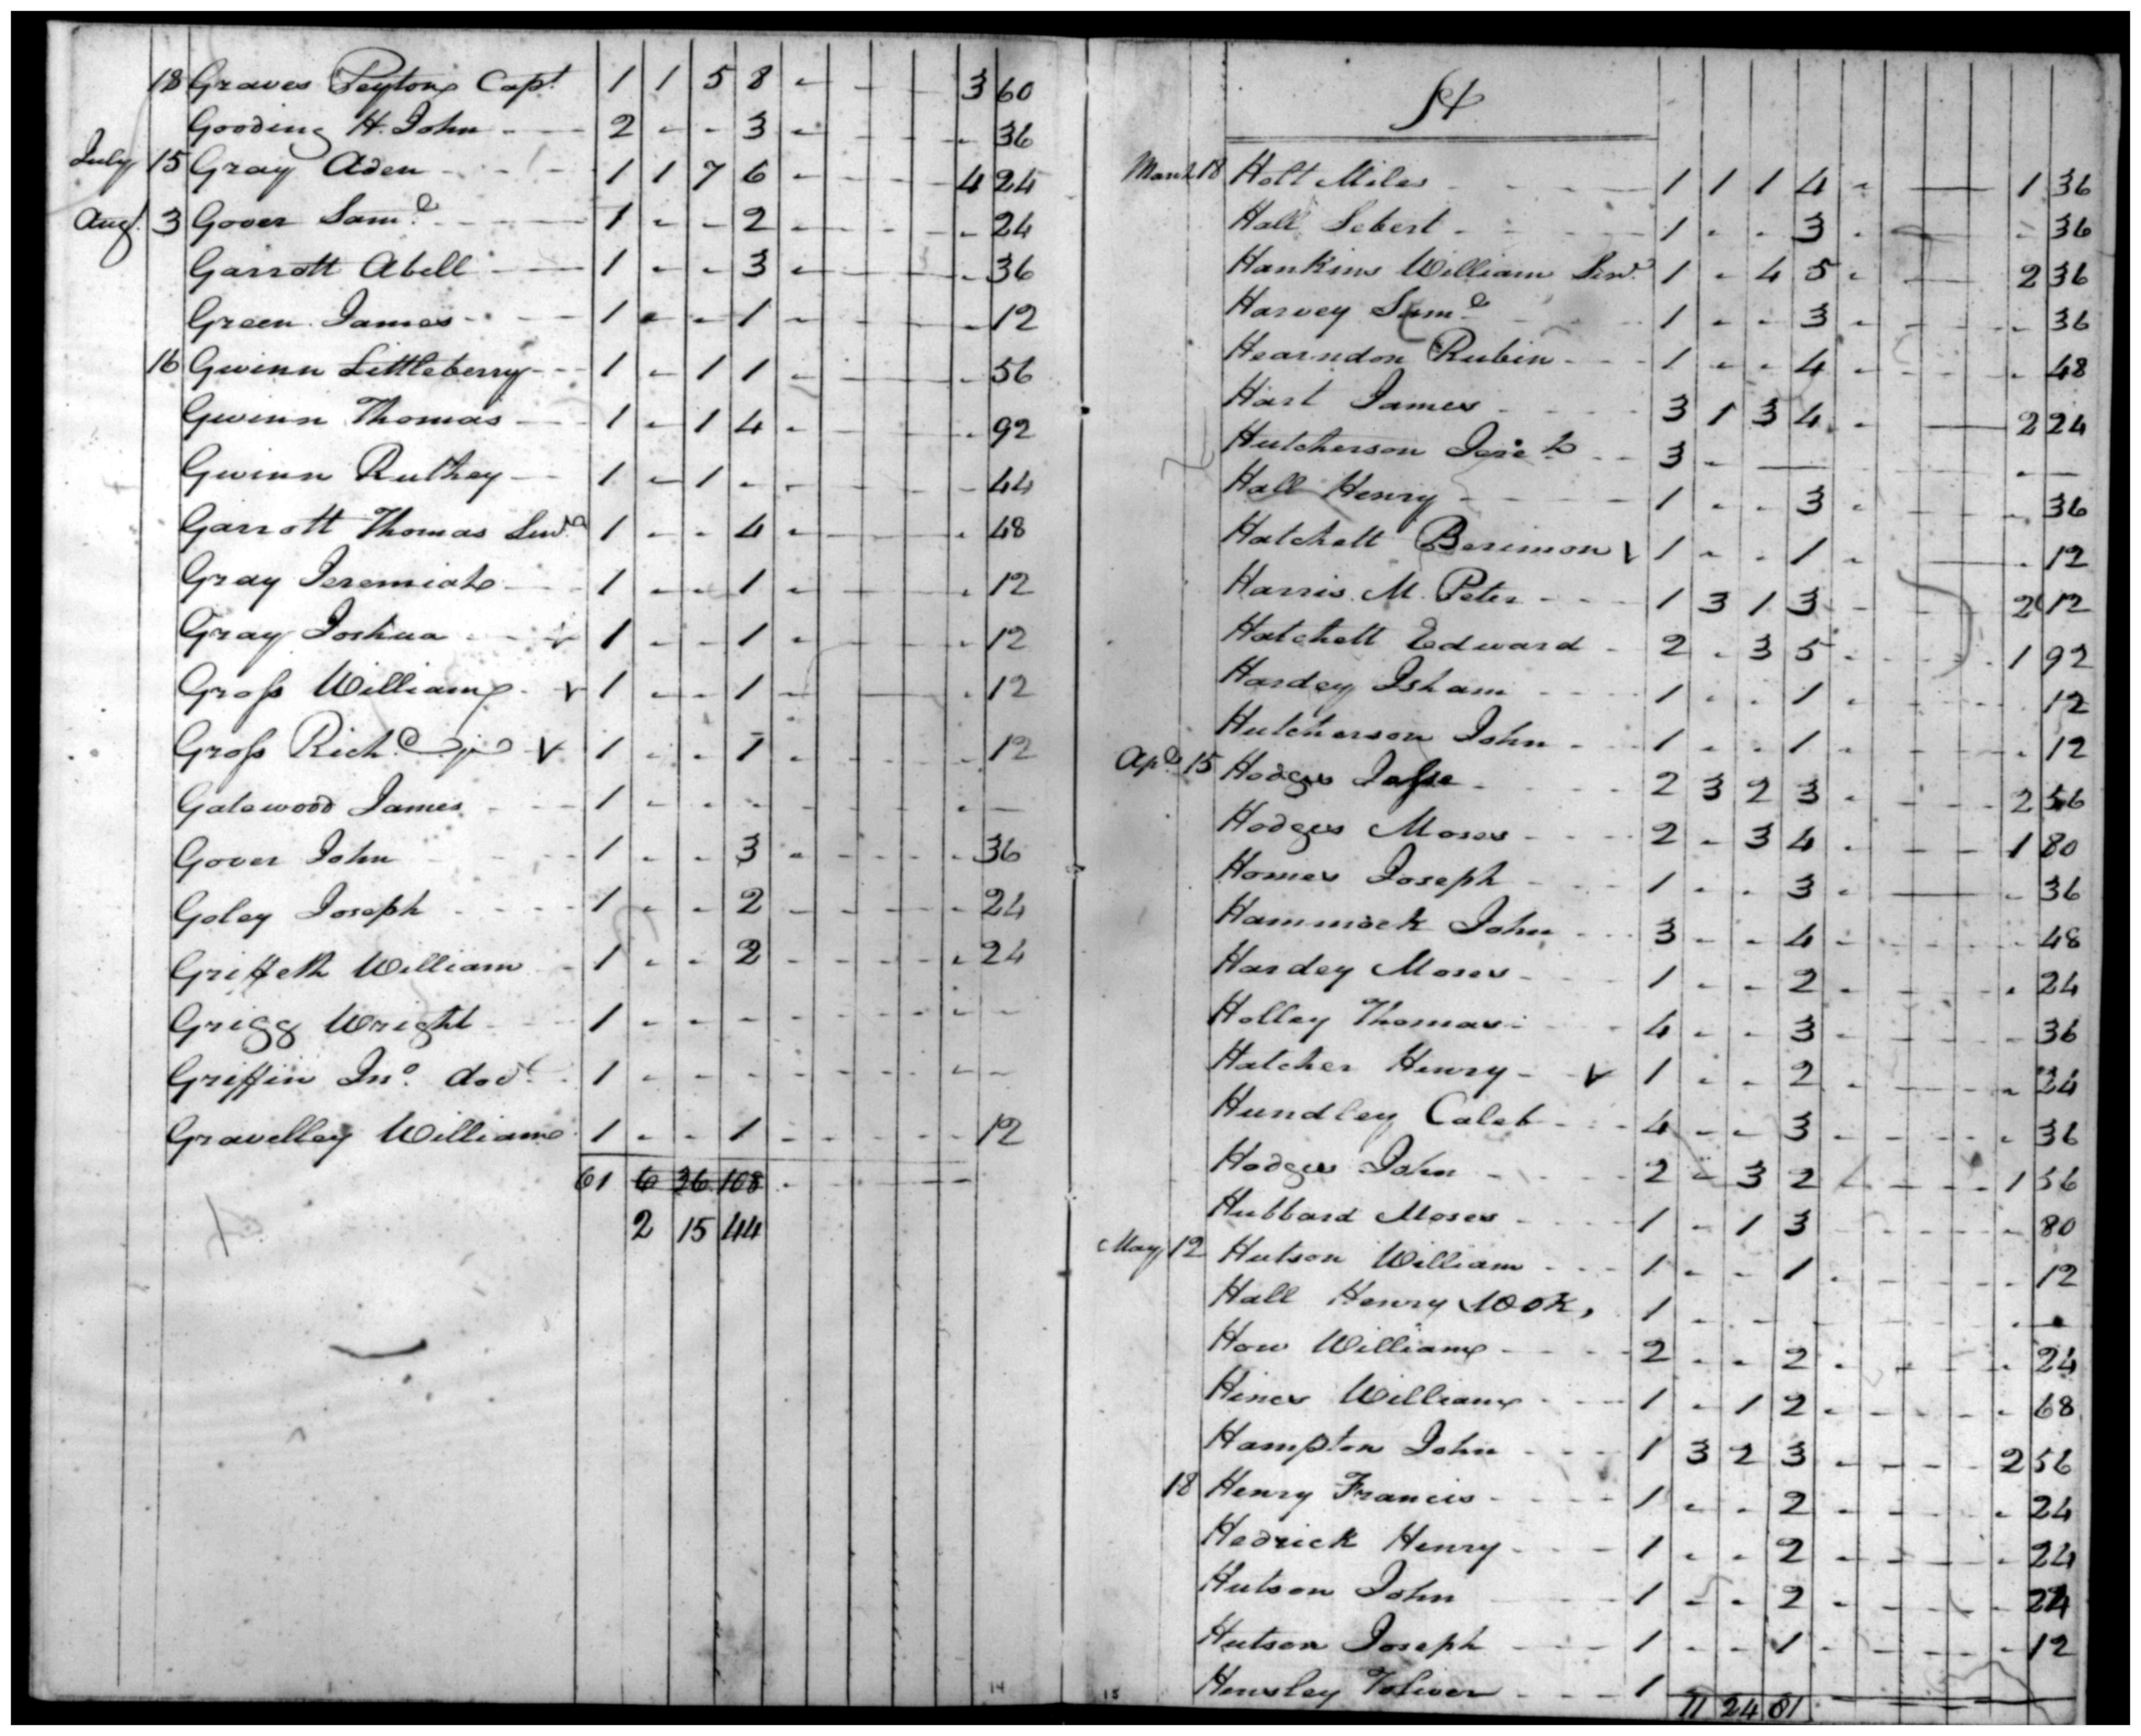 18 Graves Peyton Capt 1 1 5 8 - - - - 3 60
Gooding H. John - - 2 - - 3 - - - - - 36
July 15 Gray Aden - - - 1 1 7 6 - - - - 4 24
Augt. 3 Gover Saml. - - - 1 - - 2 - - - - - 24
Garrott Abell - - 1 - - 3 - - - - - 36
Green James - - - 1 - - 1 - - - - - 12
16 Gwinn Littleberry - - 1 - 1 1 - - - - - 56
Gwinn Thomas - - 1 - 1 4 - - - - - 92
Gwinn Ruthey - 1 - 1 - - - - - - 44
Garrott Thomas Senr. 1 - - 4 - - - - - 48
Gray Jeremiah - - 1 - - 1 - - - - - 12
Gray Joshua - - v 1 - - 1 - - - - - 12
Gross William - v 1 - - 1 - - - - - 12
Gross Richd. jr v 1 - - 1 - - - - - 12
Gatewood James - - - 1 - - - - - - - - —
Gover John - - - 1 - - 3 - - - - - 36
Goley Joseph - - - 1 - - 2 - - - - - 24
Griffeth William - 1 - - 2 - - - - - 24
Grigg Wright - - 1 - - - - - - - - -
Griffin Jno. - 1 - - - - - - - - -
Gravelley William 1 - - 1 - - - - - 12
61 6 26 108 - - - - -
2 15 44
14
H
March 18 Holt Miles - - - 1 1 1 4 - — 1 36
Hall Sebert - - - 1 - - 3 - - - - - 36
Hankins William Senr. 1 - 4 5 - - - - 2 36
Harvey Saml. - - 1 - - 3 - - - - - 36
Hearndon Rubin - - - 1 - - 4 - - - - - 48
Hart James - - - 3 1 3 4 - — 2 24
Hutcherson Jere h - - 3 - — - - - - —
Hall Henry - - - 1 - - 3 - - - - - 36
Hatchett Berimon v 1 - - 1 - — - 12
Harris M. Peter - - - 1 3 1 3 - - - - 2 12
Hatchett Edward - 2 - 3 5 - - - - 1 92
Hardey Isham - - - 1 - - 1 - - - - - 12
Hutcherson John - - 1 - - 1 - - - - - 12
Apl. 15 Hodges Jesse - - - 2 3 2 3 - - - - 2 56
Hodges Moses - - - 2 - 3 4 - - - - 1 80
Homes Joseph - - - 1 - - 3 - — - 36
Hammock John - - 3 - - 4 - - - - - 48
Hardey Moses - - - 1 - - 2 - - - - - 24
Holley Thomas - - - 4 - - 3 - - - - - 36
Hatcher Henry - v 1 - - 2 - - - - - 24
Hundley Caleb - - - 4 - - 3 - - - - - 36
Hodges John - - - 2 - 3 2 - - - - 1 56
Hubbard Moses - - - 1 - 1 3 - - - - - 80
May 12 Hutson William - - - 1 - - 1 - - - - - 12
Hall Henry 1 - - - - - - - - —
How William - - - 2 - - 2 - - - - - 24
Hines William - - - 1 - 1 2 - - - - - 68
Hampton John - - - 1 3 2 3 - - - - 2 56
18 Henry Francis - - - 1 - - 2 - - - - - 24
Hedrick Henry - - - 1 - - 2 - - - - - 24
Hutson John - - - 1 - - 2 - - - - - 24
Hutson Joseph - - - 1 - - 1 - - - - - 12
Hensley Toliver - - - 1
11 24 81
15